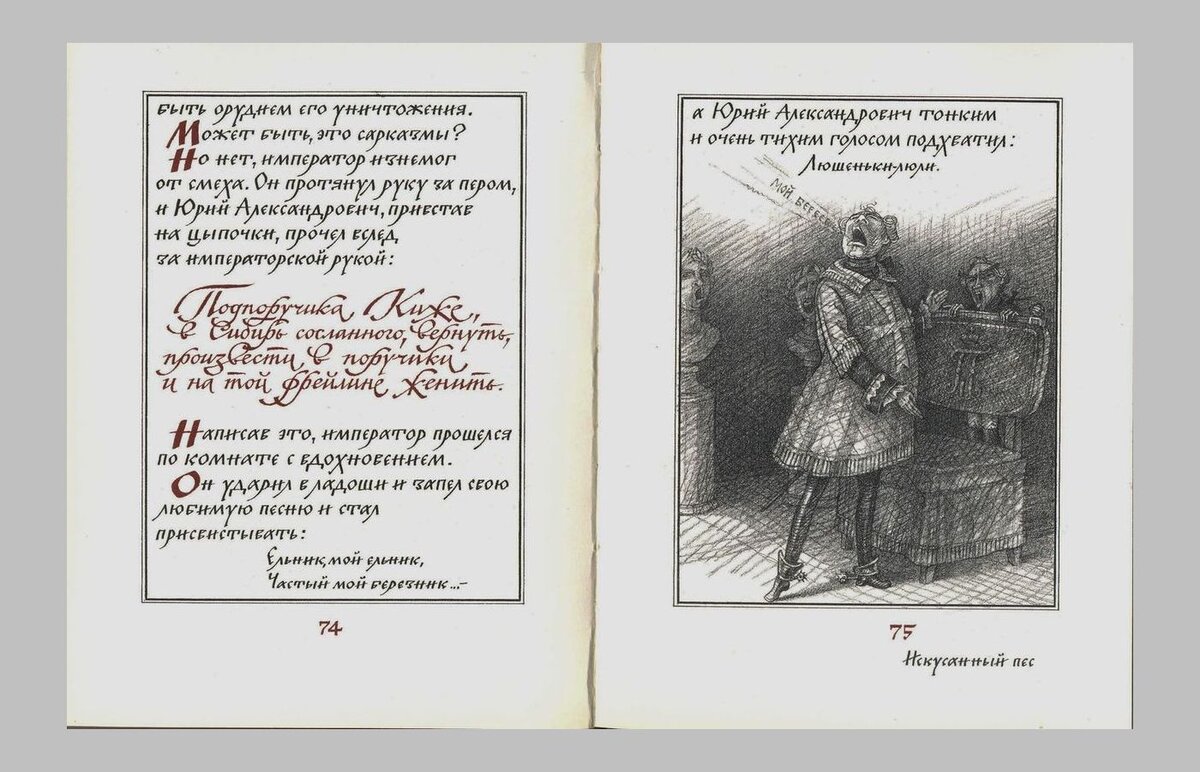 быть орудием его уничтожения.
Может быть, это сарказмы?
Но нет, император изнемог
от смеха. Он протянул руку за пером,
и Юрий Александрович, привстав
на цыпочки, прочел вслед
за императорской рукой:
Подпоручика Киже,,
в Сибирь сосланного, вернуть,
произвести в поручики
и на той фрейлине женить.
Написав это, император прошелся
по комнате с вдохновением.
Он ударил в ладоши и запел свою
любимую песню и стал
присвистывать:
Ельник, мой ельник,
Частый мой березник...–
74
а Юрий Александрович тонким
и очень тихим голосом подхватил:
Люшеньки-люли.
МОЙ БЕРЕС
75
Искусанный пес